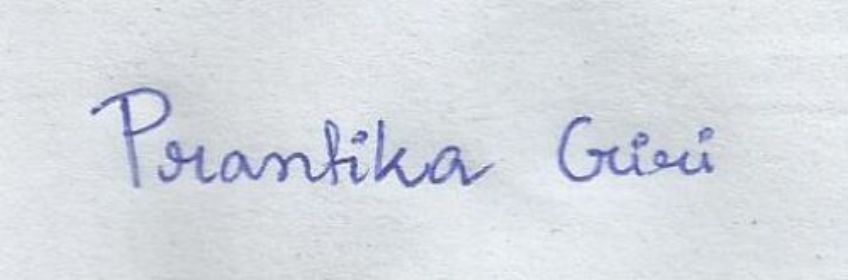 Prantika Giri